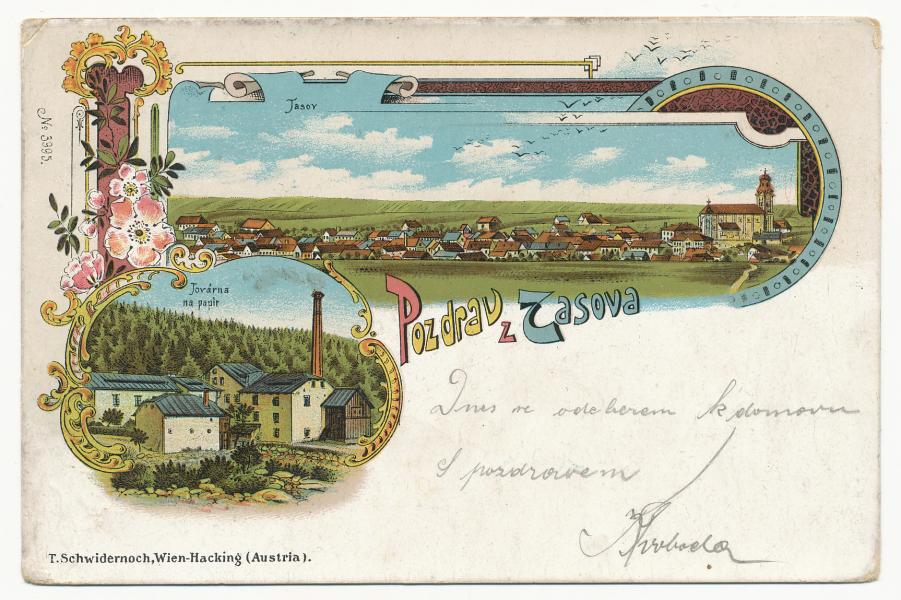 Tasov
No 3995.
Továrna
na papír
Pozdrav z Tasova
Dnes se odeberem k domovu
S pozdravem
Svoboda
T. Schwidernoch, Wien-Hacking (Austria).